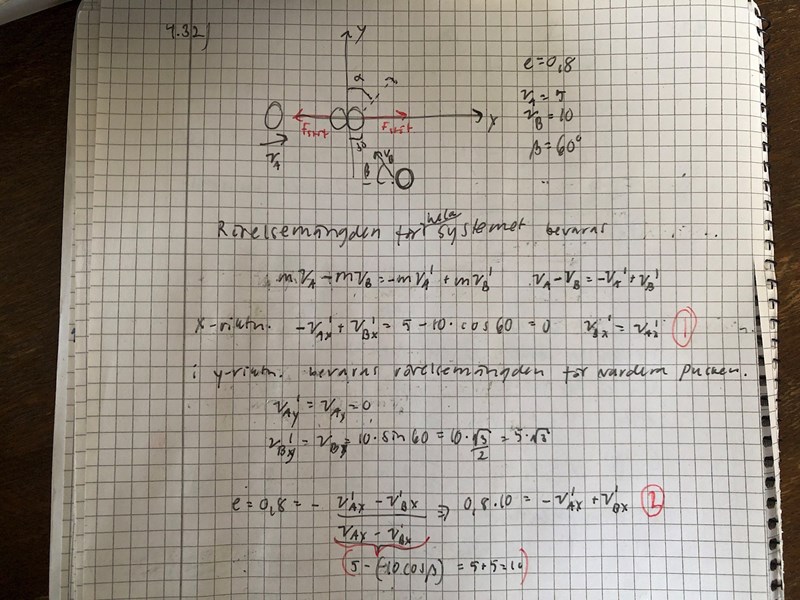 4.32)
y
e=0,8
α
v_A = 5
x
v_B = 10
Fstöt
Fstöt
30
β = 60°
v_A
β
v_B
Rörelsemängden för hela systemet bevaras
m v_A - m v_B = -m v_A' + m v_B' v_A - v_B = -v_A' + v_B'
x-riktn. -v_Ax' + v_Bx' = 5 - 10 · cos 60 = 0 v_Bx' = v_Ax' 1
i y-riktn. bevaras rörelsemängden för vardera pucken.
v_Ay' = v_Ay = 0
v_By' = v_By = 10 · sin 60 = 10 · √3/2 = 5 · √3
e = 0,8 = - (v_Ax' - v_Bx')/(v_Ax - v_Bx') ⇔ 0,8 · 10 = -v_Ax' + v_Bx' 2
(5 - (-10 cos β) = 5 + 5 = 10)